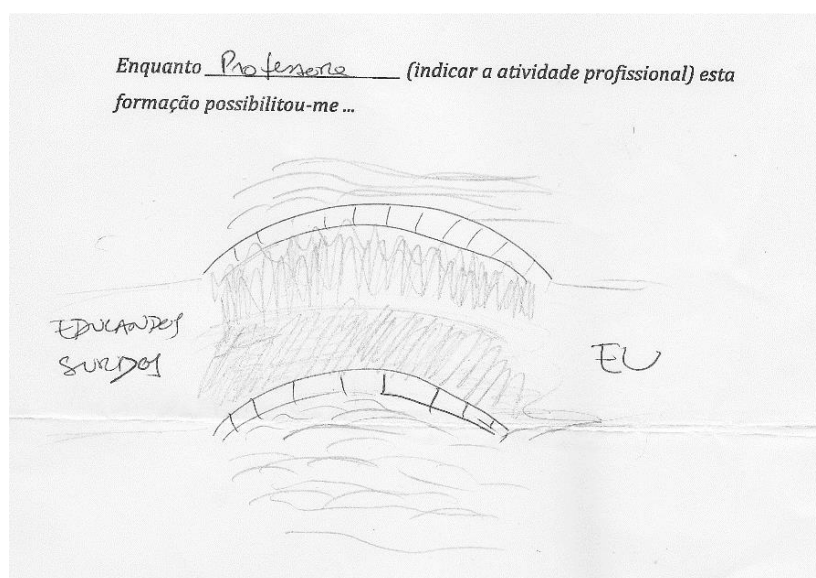 Enquanto Professora (indicar a atividade profissional) esta
formação possibilitou-me ...
EDUCANDOS
SURDOS
EU